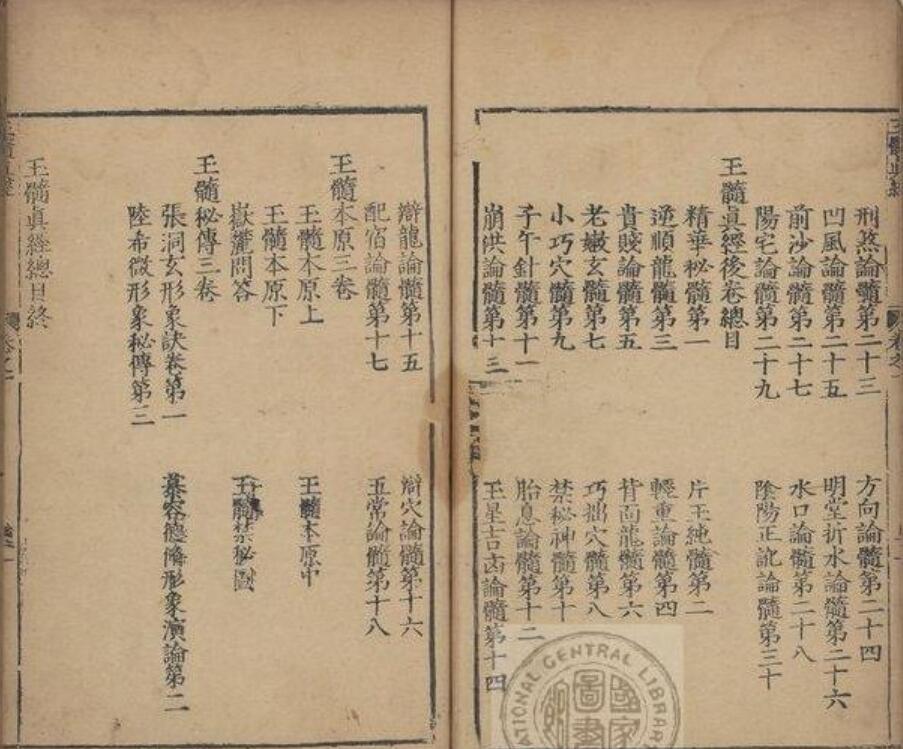 刑煞論髓第二十三　方向論髓第二十四
凹風論髓第二十五　明堂折水論髓第二十六
前沙論髓第二十七　水口論髓第二十八
陽宅論髓第二十九　陰陽正訛論髓第三十
玉髓真經後卷總目
精華秘髓第一　片玉純髓第二
逆順龍髓第三　輕重論髓第四
貴賤論髓第五　背面龍髓第六
老嫩玄髓第七　巧拙穴髓第八
小巧穴髓第九　禁秘神髓第十
子午針髓第十一　胎息論髓第十二
崩洪論髓第十三　玉星吉凶論髓第十四
辯龍論髓第十五　辯穴論髓第十六
配宿論髓第十七　五常論髓第十八
玉髓本原三卷
玉髓本原上　玉髓本原中
玉髓本原下
嶽麓問答　玉髓禁秘圖
玉髓秘傳三卷
張洞玄形象訣卷第一　慕容德隆形象演論第二
陸布微形象秘傳第三
玉髓真經總目終
NATIONAL CENTRAL LIBRAR
國家圖書